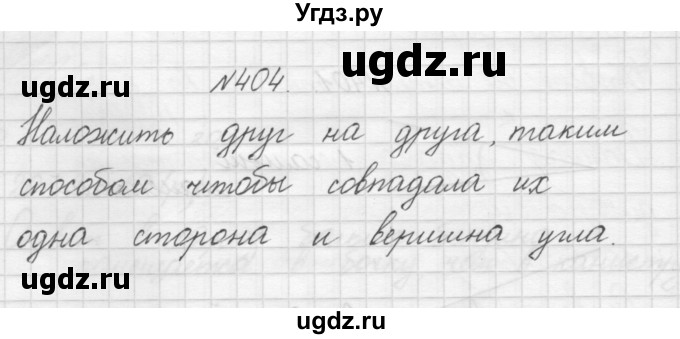 Угдз.ру
ugdz.ru
ugdz.ru
№404.
ugdz.ru
Наложить друг на друга, таким
способом чтобы совпадала их
одна сторона и вершина угла.
ugdz.ru
ugdz.ru
ugdz.ru